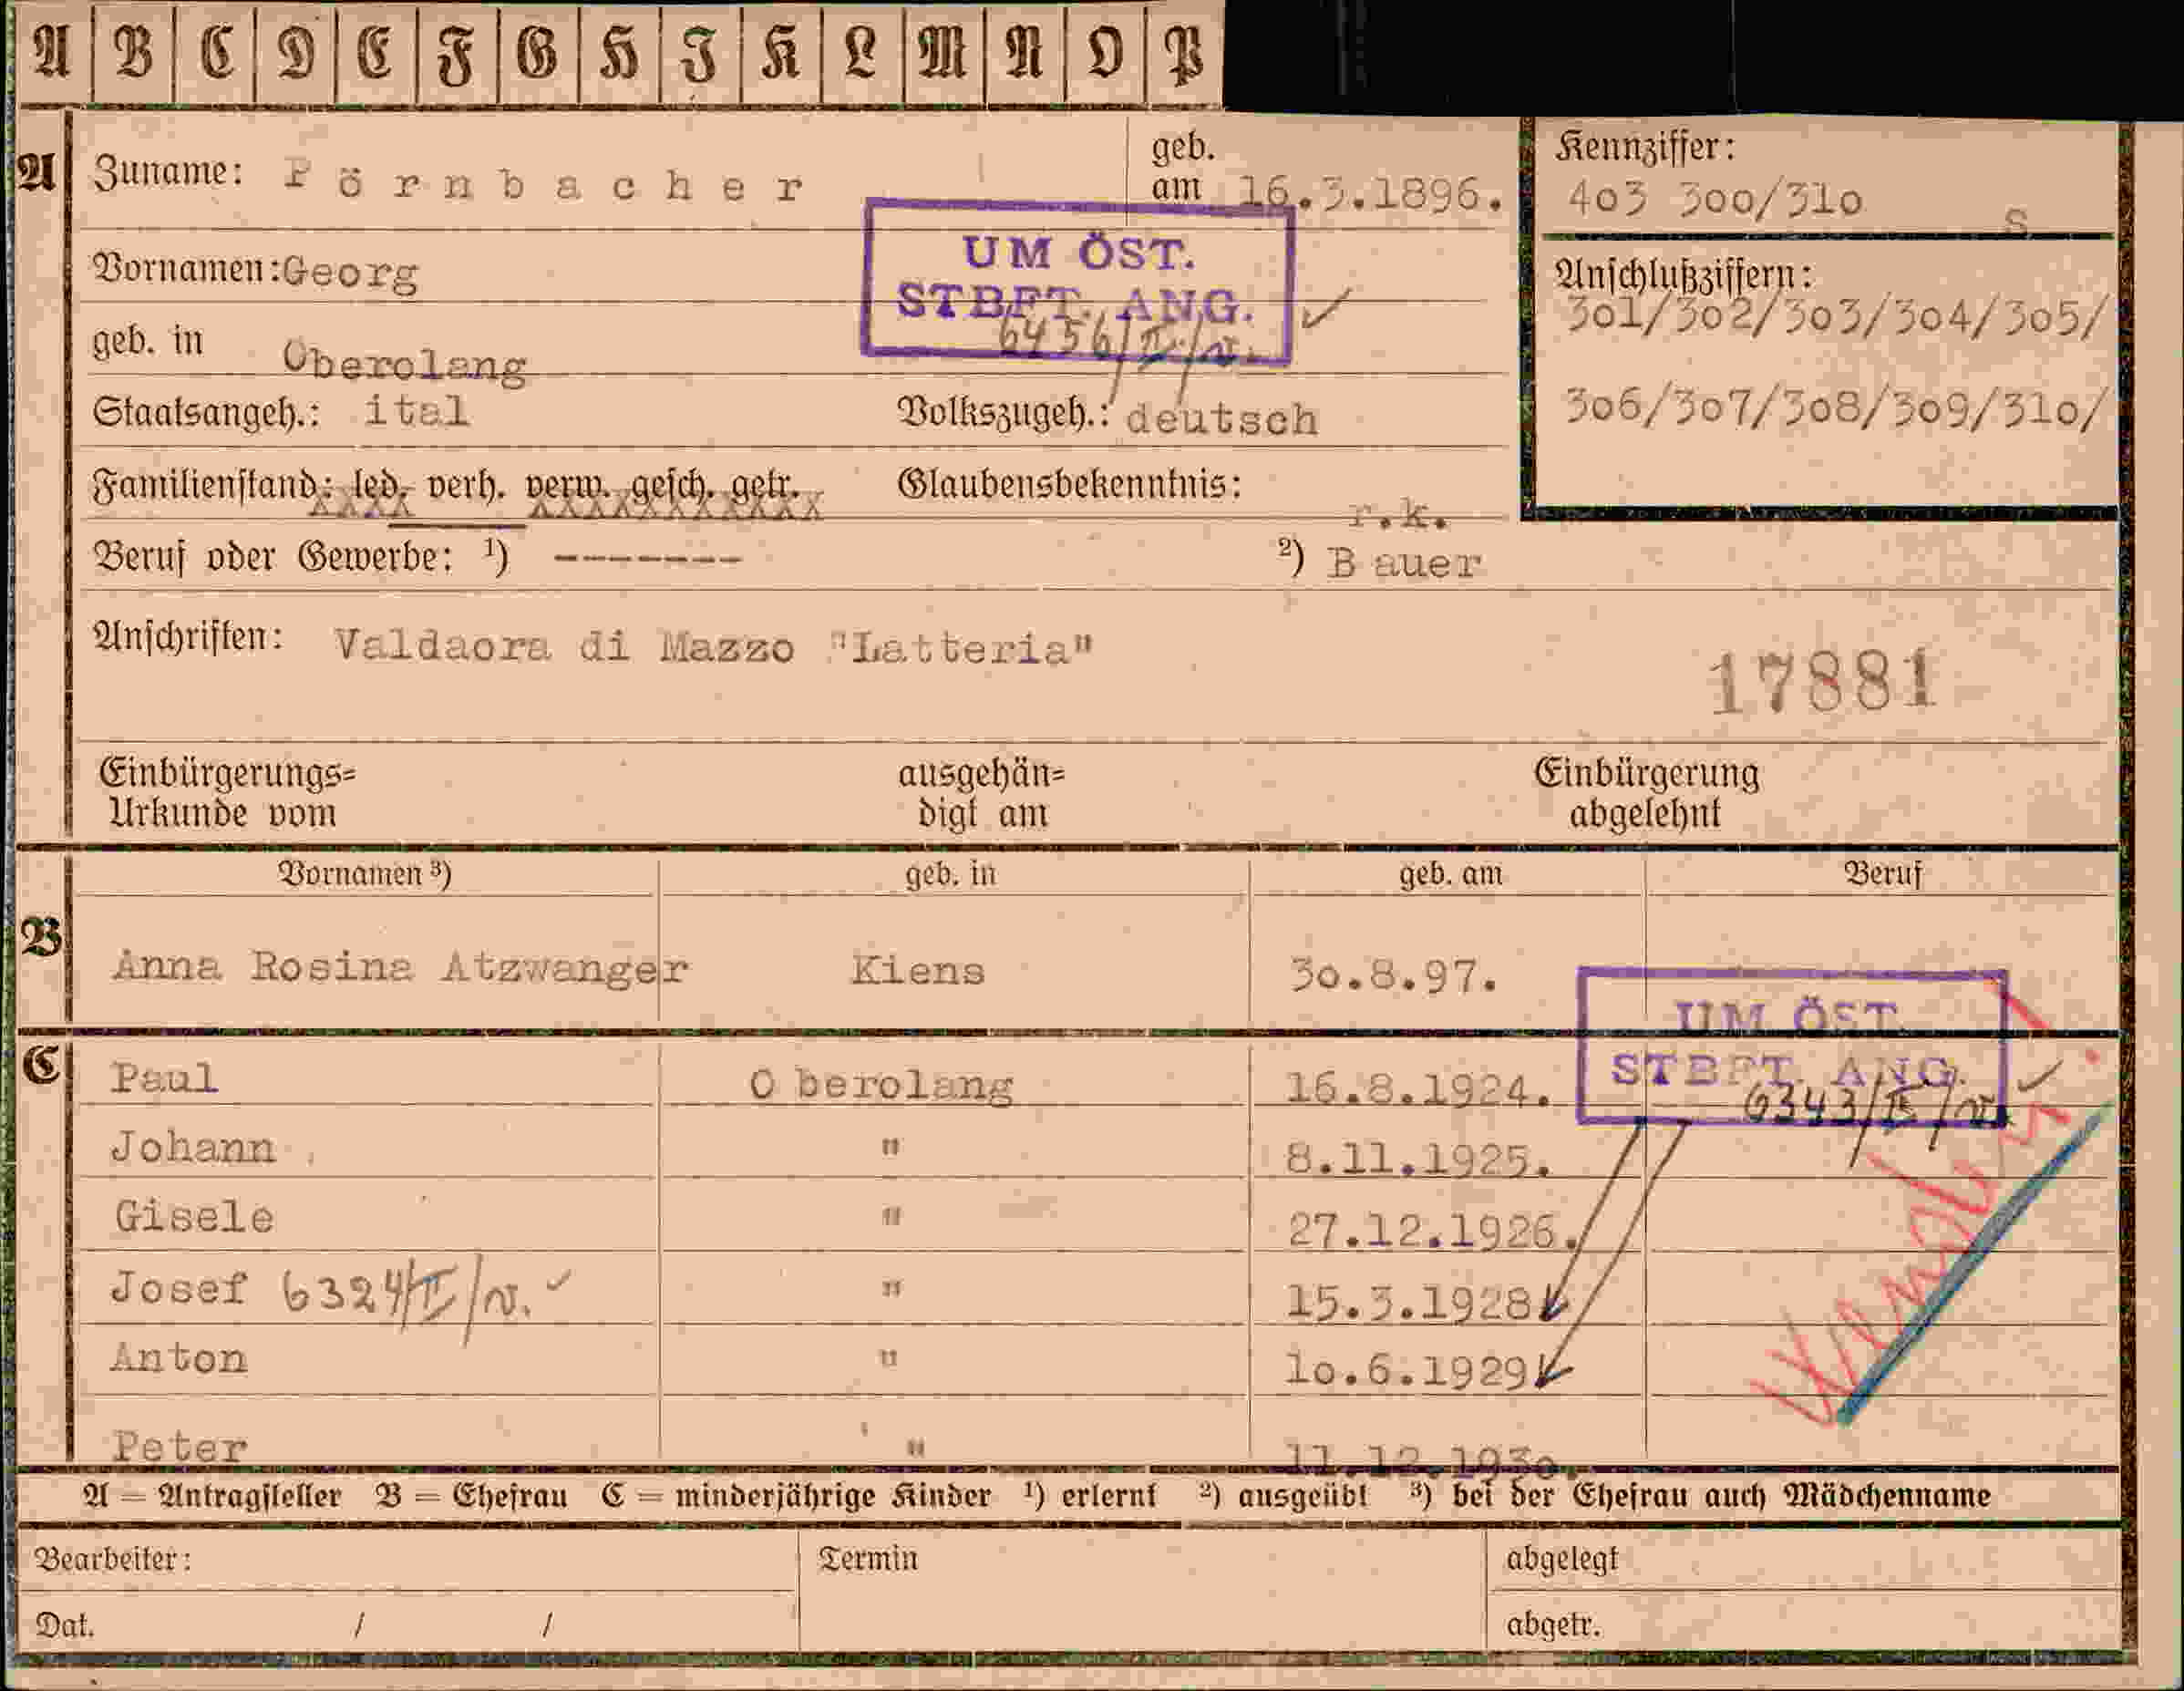 A B C D E F G H I K L M N O P
A Zuname: Pörnbacher geb. am 16.3.1896. Kennziffer: 403 300/310 S
Vornamen: Georg
UM ÖST.
STBFT. ANG.
6456/II/
Anschlußziffern:
301/302/303/304/305/
306/307/308/309/310/
geb. in Oberolang
Staatsangeh.: ital Volkszugeh.: deutsch
Familienstand: led. verh. verw. gesch. getr. Glaubensbekenntnis: r.k.
Beruf oder Gewerbe: ¹) ------- ²) Bauer
Anschriften: Valdaora di Mazzo "Latteria"
17881
Einbürgerungs= Urkunde vom ausgehän= digt am Einbürgerung abgelehnt
Vornamen ³) geb. in geb. am Beruf
B Anna Rosina Atzwanger Kiens 30.8.97.
UM ÖST.
STBFT. ANG.
6343/II/
C Paul Oberolang 16.8.1924.
Johann " 8.11.1925.
Gisele " 27.12.1926.
Josef 6324/II/ " 15.3.1928
Anton " 10.6.1929
Peter " 11.12.1930.
A = Antragsteller B = Ehefrau C = minderjährige Kinder ¹) erlernt ²) ausgeübt ³) bei der Ehefrau auch Mädchenname
Bearbeiter: Termin abgelegt
Dat. / / abgetr.